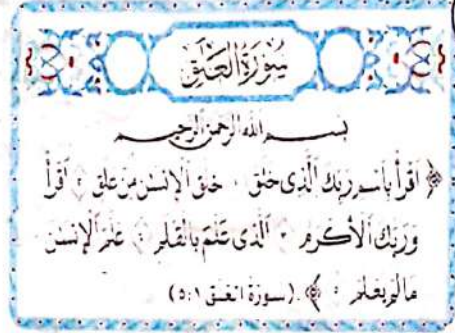 سُورَةُ العَلَقِ
بِسْمِ اللَّهِ الرَّحْمَٰنِ الرَّحِيمِ
﴿ ٱقۡرَأۡ بِٱسۡمِ رَبِّكَ ٱلَّذِى خَلَقَ ۞ خَلَقَ ٱلۡإِنسَٰنَ مِنۡ عَلَقٍ ۞ ٱقۡرَأۡ
وَرَبُّكَ ٱلۡأَكۡرَمُ ۞ ٱلَّذِى عَلَّمَ بِٱلۡقَلَمِ ۞ عَلَّمَ ٱلۡإِنسَٰنَ
مَا لَمۡ يَعۡلَمۡ ۞ ﴾ (سورة العلق ٥:١)